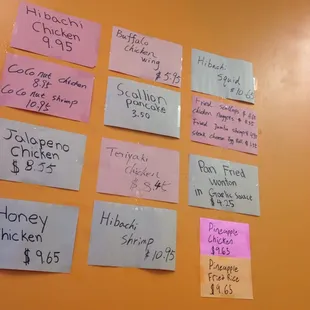 Hibachi
Chicken
9.95
Coconut chicken
8.95
Coconut shrimp
10.95
Jalapeno
Chicken
$ 8.55
Honey
Chicken
$ 9.65
Buffalo
chicken
wing
$ 5.95
Scallion
pancake
3.50
Teriyaki
Chicken
$ 8.45
Hibachi
Shrimp
$ 10.95
Hibachi
Squid
$ 10.65
Fried Scallops
chicken nuggets
Fried Jumbo shrimp
steak cheese egg roll
Pan Fried
wonton
in Garlic sauce
$ 4.25
Pineapple
Chicken
$ 9.65
Pineapple
Fried Rice
$ 9.65